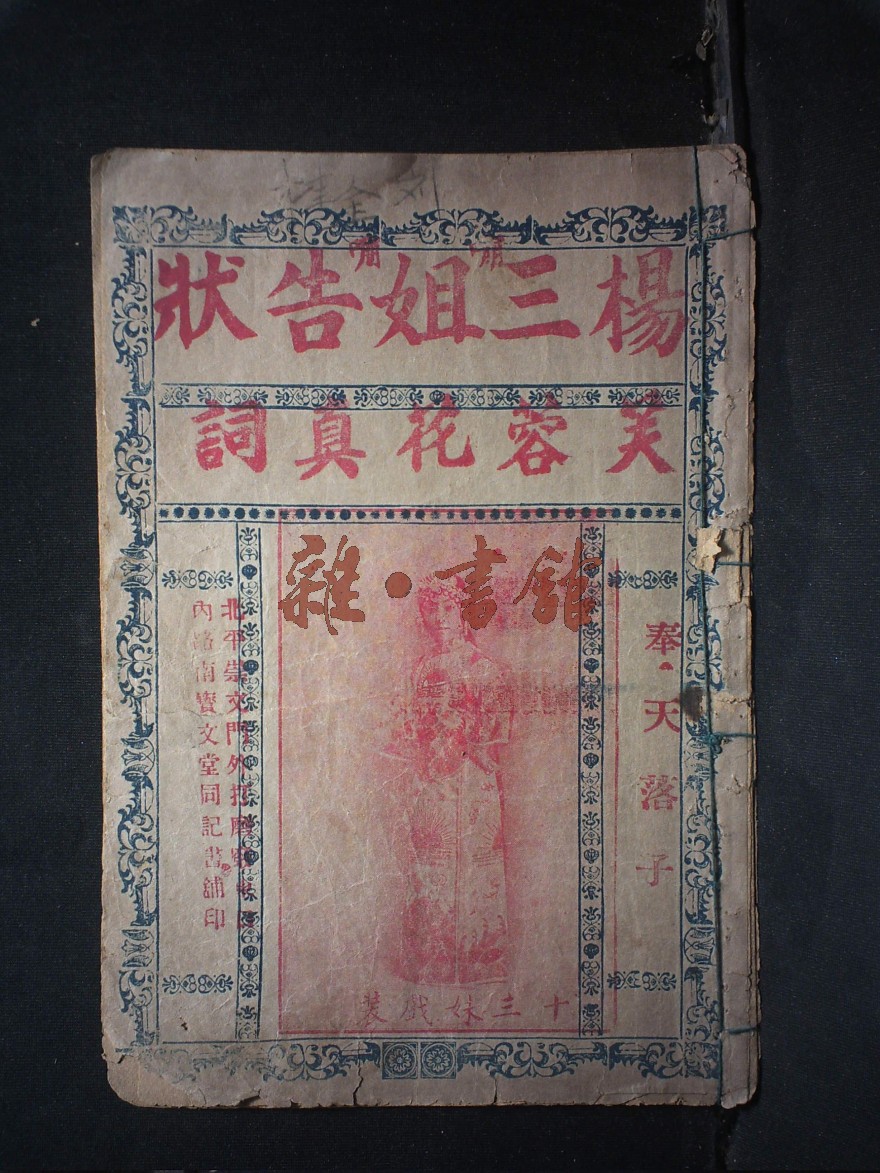 楊三姐告狀
芙蓉花真詞
雜·書館
奉天落子
十三妹戲裝
北平崇文門外打磨廠
內路南寶文堂同記書舖印